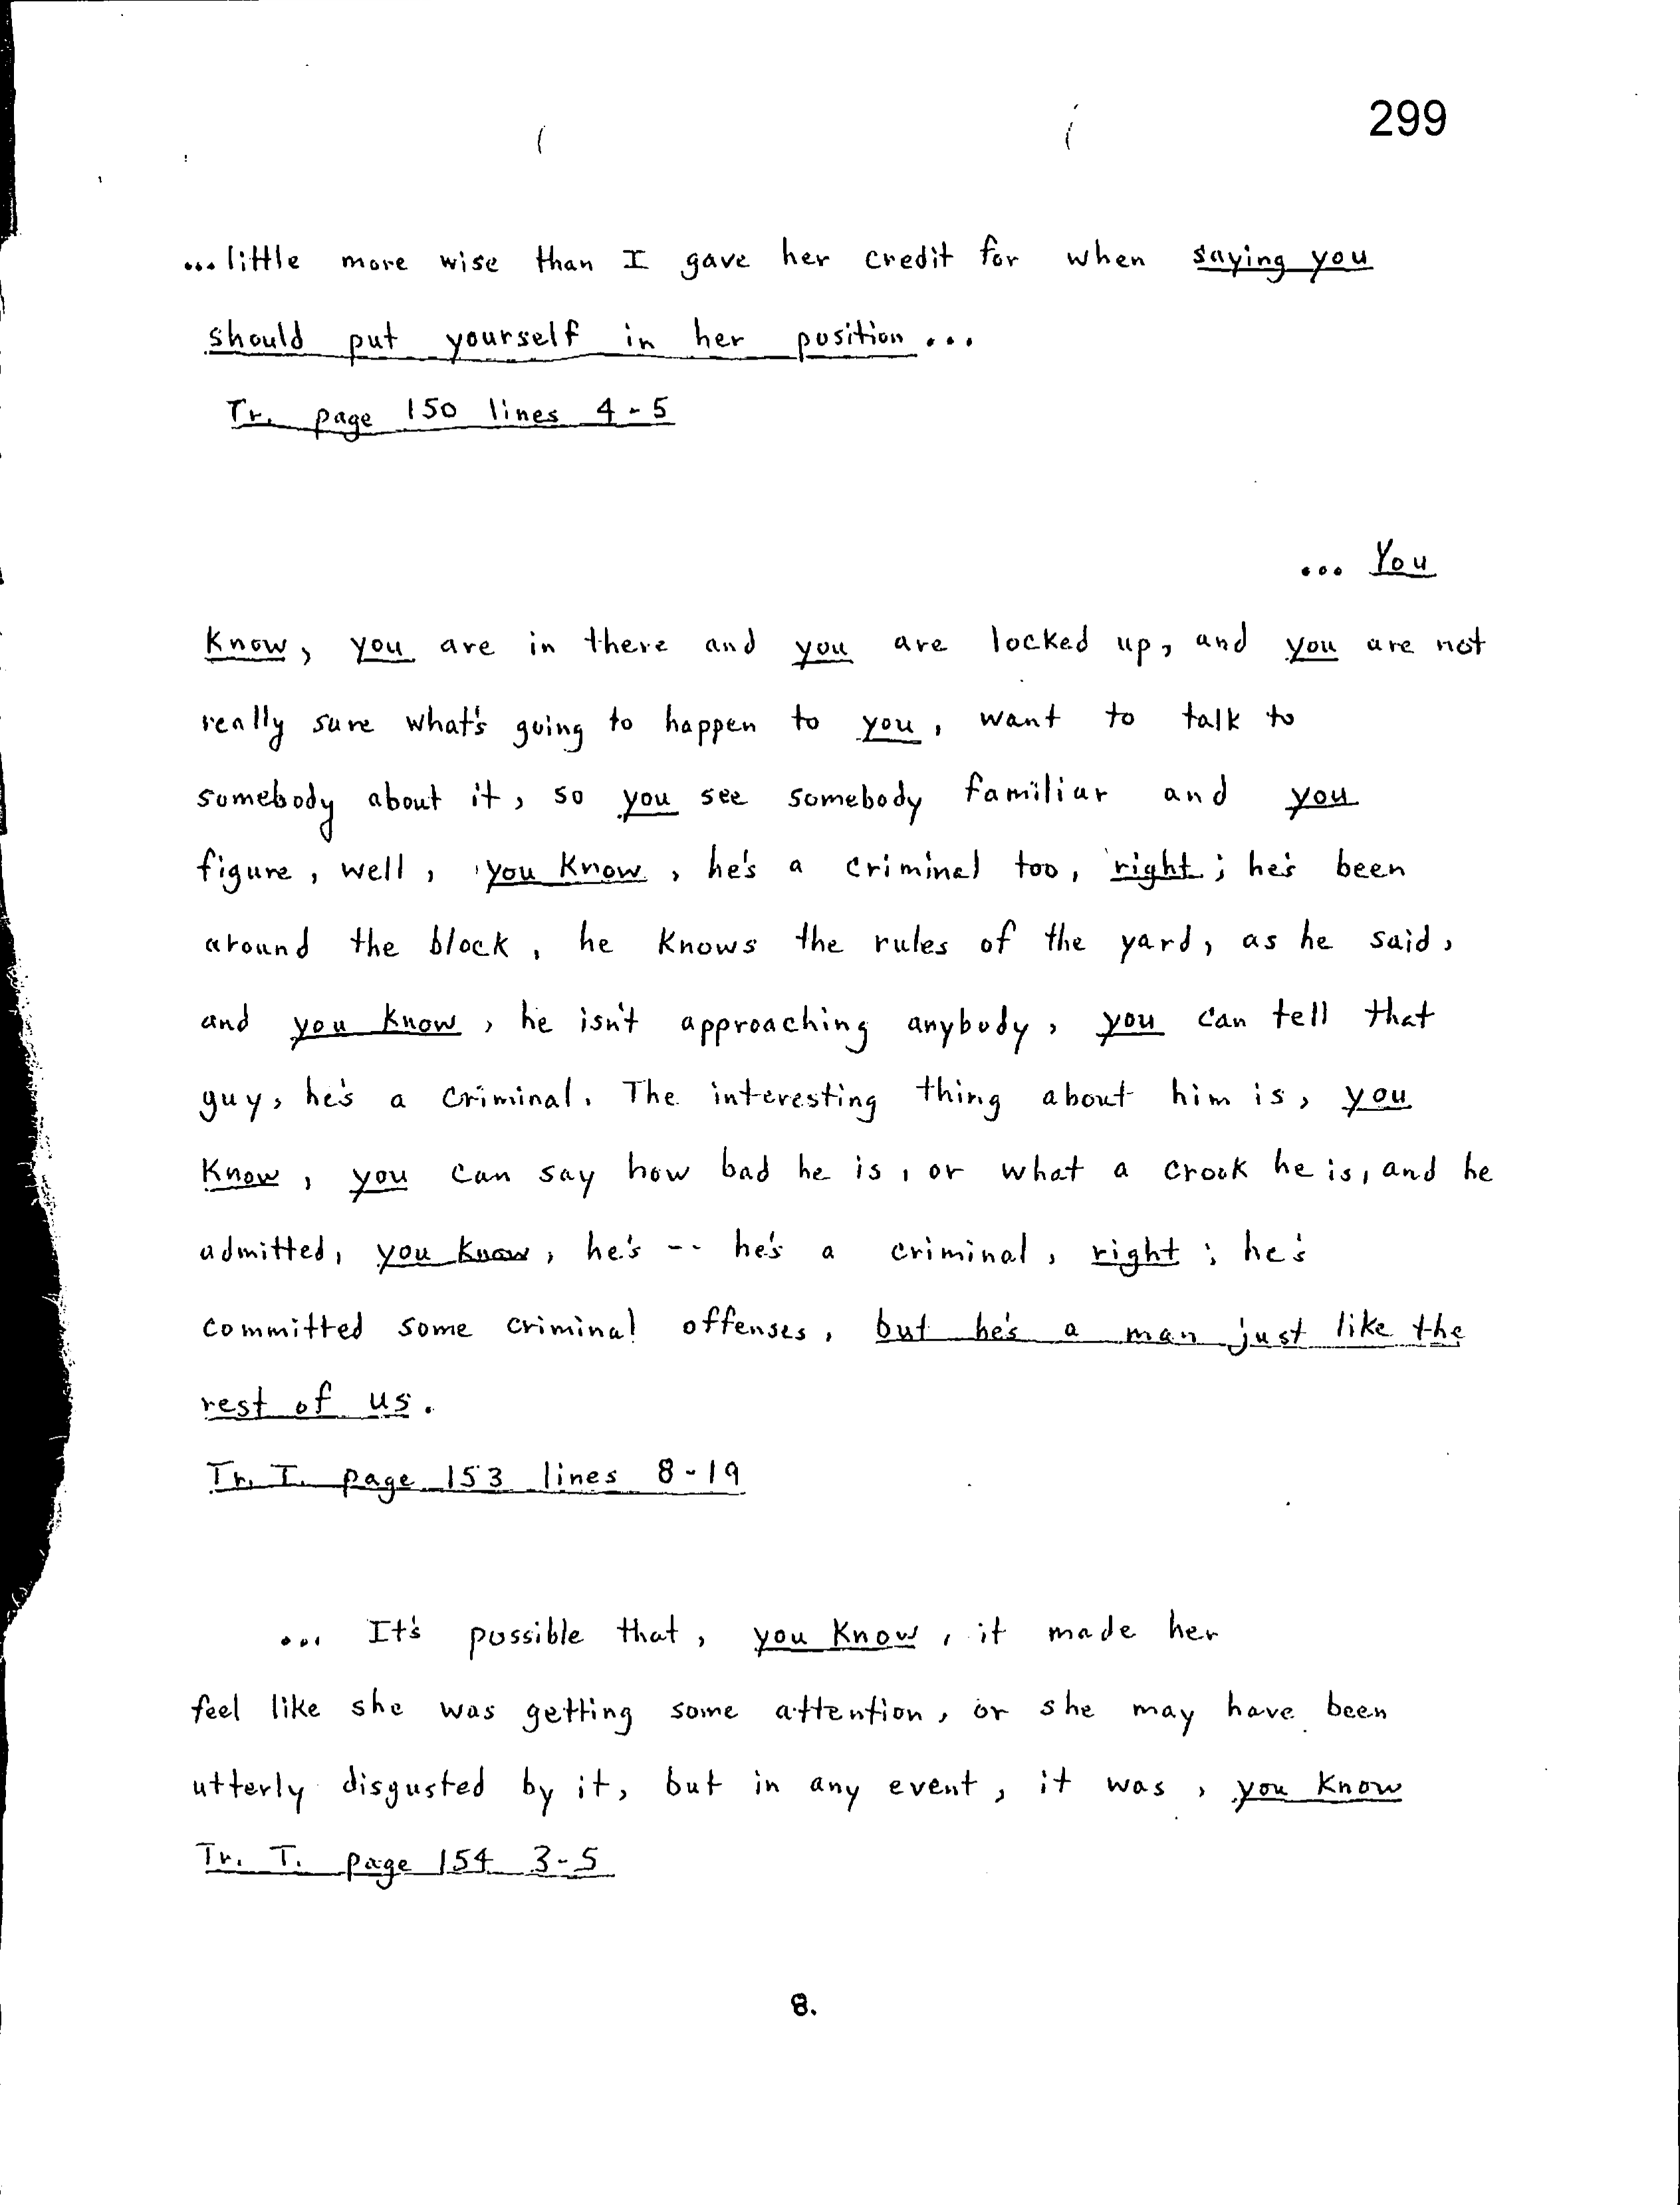 299
...little more wise than I gave her credit for when saying you
should put yourself in her position...
Tr. page 150 lines 4-5
... You
Know, you are in there and you are locked up, and you are not
really sure what's going to happen to you, want to talk to
somebody about it, so you see somebody familiar and you
figure, well, you know, he's a criminal too, right; he's been
around the block, he knows the rules of the yard, as he said,
and you know, he isn't approaching anybody, you can tell that
guy, he's a criminal. The interesting thing about him is, you
Know, you can say how bad he is, or what a crook he is, and he
admitted, you know, he's -- he's a criminal, right; he's
committed some criminal offenses, but he's a man just like the
rest of us.
Tr. I. page 153 lines 8-19
... It's possible that, you know, it made her
feel like she was getting some attention, or she may have been
utterly disgusted by it, but in any event, it was, you know
Tr. T. page 154 3-5
8.